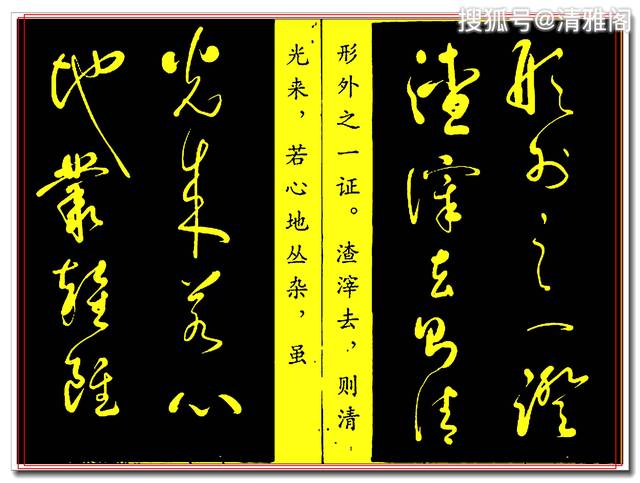 搜狐号@清雅阁
形外之一證
渣滓去則清
形外之一证。渣滓去，则清
光来，若心地丛杂，虽
光来若心
地叢雜雖